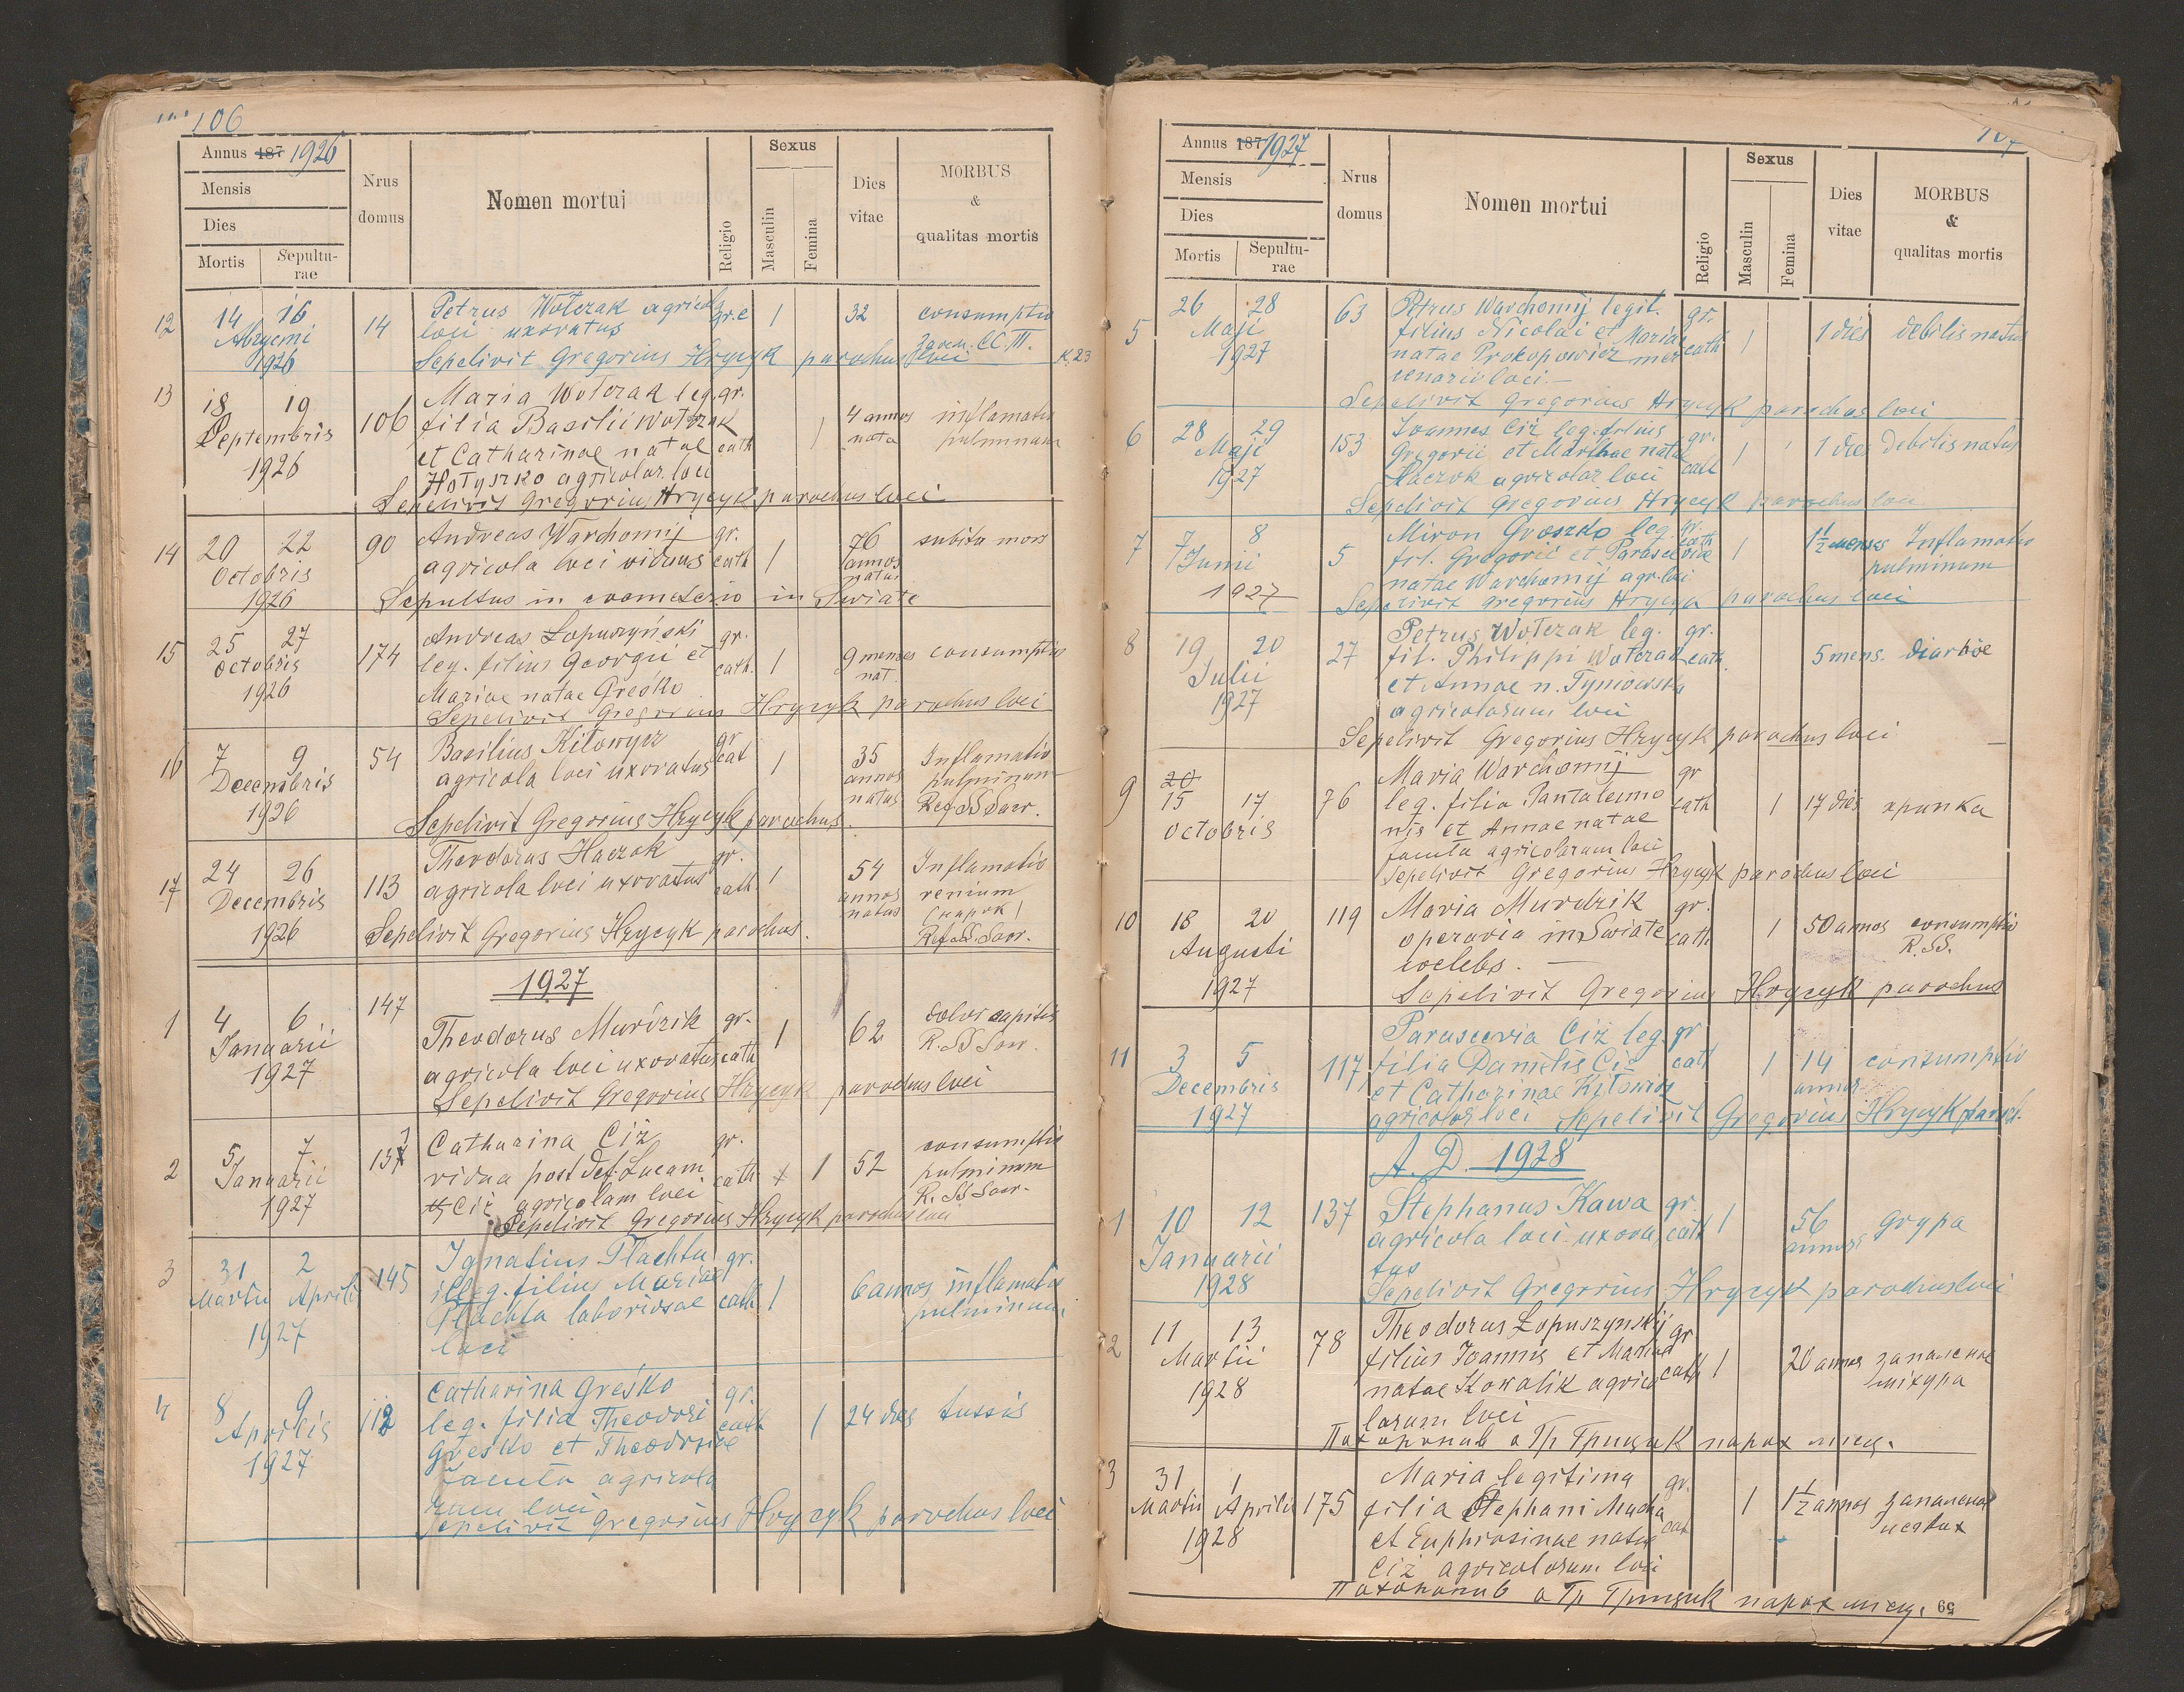 106
Annus 187 1926
Mensis
Dies
Mortis
Sepultu-
rae
Nrus
domus
Nomen mortui
Religio
Sexus
Masculin
Femina
Dies
vitae
MORBUS
&
qualitas mortis
12 14 16 14 Petrus Wołczak agricola gr.c 1 32 consumptio
1926 loci uxoratus
Sepelivit Gregorius Hrycyk parochus loci K.23
13 18 19 106 Maria Wołczak leg. gr.
Septembris filia Basilii Wołczak 1 4 annos inflamatio
1926 et Catharinae natae cath nata pulminum
Hołyszko agricolar. loci
Sepelivit Gregorius Hrycyk parochus loci
14 20 22 90 Andreas Warchomij gr. 1 76 subita mors
Octobris agricola loci viduus cath annos
1926 natus
Sepultus in coemeterio in Swiate
15 25 27 174 Andreas Łopuszyński gr. 1 9 menses consumptio
Octobris leg. filius Georgii et cath. nat.
1926 Mariae natae Greśko
Sepelivit Gregorius Hrycyk parochus loci
16 7 9 54 Basilius Kiłowycz gr 1 35 Inflamatio
Decembris agricola loci uxoratus cat annos pulminum
1926 natus Ref. SS Sacr.
Sepelivit Gregorius Hrycyk parochus.
17 24 26 113 Theodorus Haczak gr. 1 54 Inflamatio
Decembris agricola loci uxoratus cath. annos renium
1926 natus
Sepelivit Gregorius Hrycyk parochus. Ref. SS. Sacr.
1927
1 4 6 147 Theodorus Murdzik gr. 1 62 dolor capitis
Januarii agricola loci uxoratus cath R. SS Sacr.
1927
Sepelivit Gregorius Hrycyk parochus loci
2 5 7 137 Catharina Ciż gr. 1 52 consumptio
Januarii vidua post def. Lucam cath pulminum
1927 Ciż agricolam loci R. SS Sacr.
Sepelivit Gregorius Hrycyk parochus loci
3 31 2 145 Ignatius Płachta gr. 1 6 annos inflamatio
Martii Aprilis illeg. filius Mariae cath pulminum
1927 Płachta laboriosae
loci
4 8 9 112 Catharina Greśko gr. 1 24 dies tussis
Aprilis leg. filia Theodori cath
1927 Greśko et Theodosiae
Jacuta agricola
rum loci
Sepelivit Gregorius Hrycyk parochus loci
107
Annus 187 1927
Mensis
Dies
Mortis
Sepultu-
rae
Nrus
domus
Nomen mortui
Religio
Sexus
Masculin
Femina
Dies
vitae
MORBUS
&
qualitas mortis
5 26 28 63 Petrus Warchomij legit. gr. 1 1 dies debilis natus
Maji filius Nicolai et Mariae
1927 natae Prokopowicz mer cath
cenarii loci.
Sepelivit Gregorius Hrycyk parochus loci
6 28 29 153 Joannes Ciż leg. filius gr. 1 1 dies debilis natus
Maji Gregorii et Marthae natae
1927 Haczok agricolar loci cath
Sepelivit Gregorius Hrycyk parochus loci
7 7 8 5 Miron Groszko leg. gr. 1 1 1/2 menses Inflamatio
Junii fil. Gregorii et Parasceviae cath pulminum
1927 natae Warchomij agr. loci
Sepelivit Gregorius Hrycyk parochus loci
8 19 20 27 Petrus Wołczak leg. gr. 5 mens. diarhöe
Julii fil. Philippi Wołczak cath.
1927 et Annae n. Tyniowska
agricolarum loci
Sepelivit Gregorius Hrycyk parochus loci
9 20
15 17 76 Maria Warchomij gr 1 17 dies
Octobris leg. filia Pantaleimo cath
nis et Annae natae
Jacuta agricolarum loci
Sepelivit Gregorius Hrycyk parochus loci
10 18 20 119 Maria Murdzik gr. 1 50 annos consumptio
Augusti operaria in Swiate cath. R. SS.
1927 coelebs.
Sepelivit Gregorius Hrycyk parochus
11 3 5 117 Parascevia Ciż leg. gr 1 14 consumptio
Decembris filia Danielis Ciż cath annos
1927 et Catharinae Kiłowicz
agricolar loci Sepelivit Gregorius Hrycyk paroch.
A. D. 1928
1 10 12 137 Stephanus Kawa gr. 1 56 grypa
Januarii agricola loci uxora cath annos
1928 tus
Sepelivit Gregorius Hrycyk parochus loci
2 11 13 78 Theodorus Łopuszynskij gr 1 20 annos запалення
Martii filius Joannis et Mariae cath
1928 natae Kowalik agrico
larum loci
Похоронив о Гр Грицик парох місц.
3 31 1 175 Maria legitima gr. 1 1 1/2 annos запалення
Martii Aprilis filia Stephani Mucha cat
1928 et Euphrosinae natae
Ciż agricolarum loci
Похоронив о Гр Грицик парох місц.
59